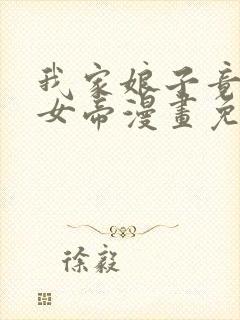 我家娘子竟
女帝漫畫免
徐毅